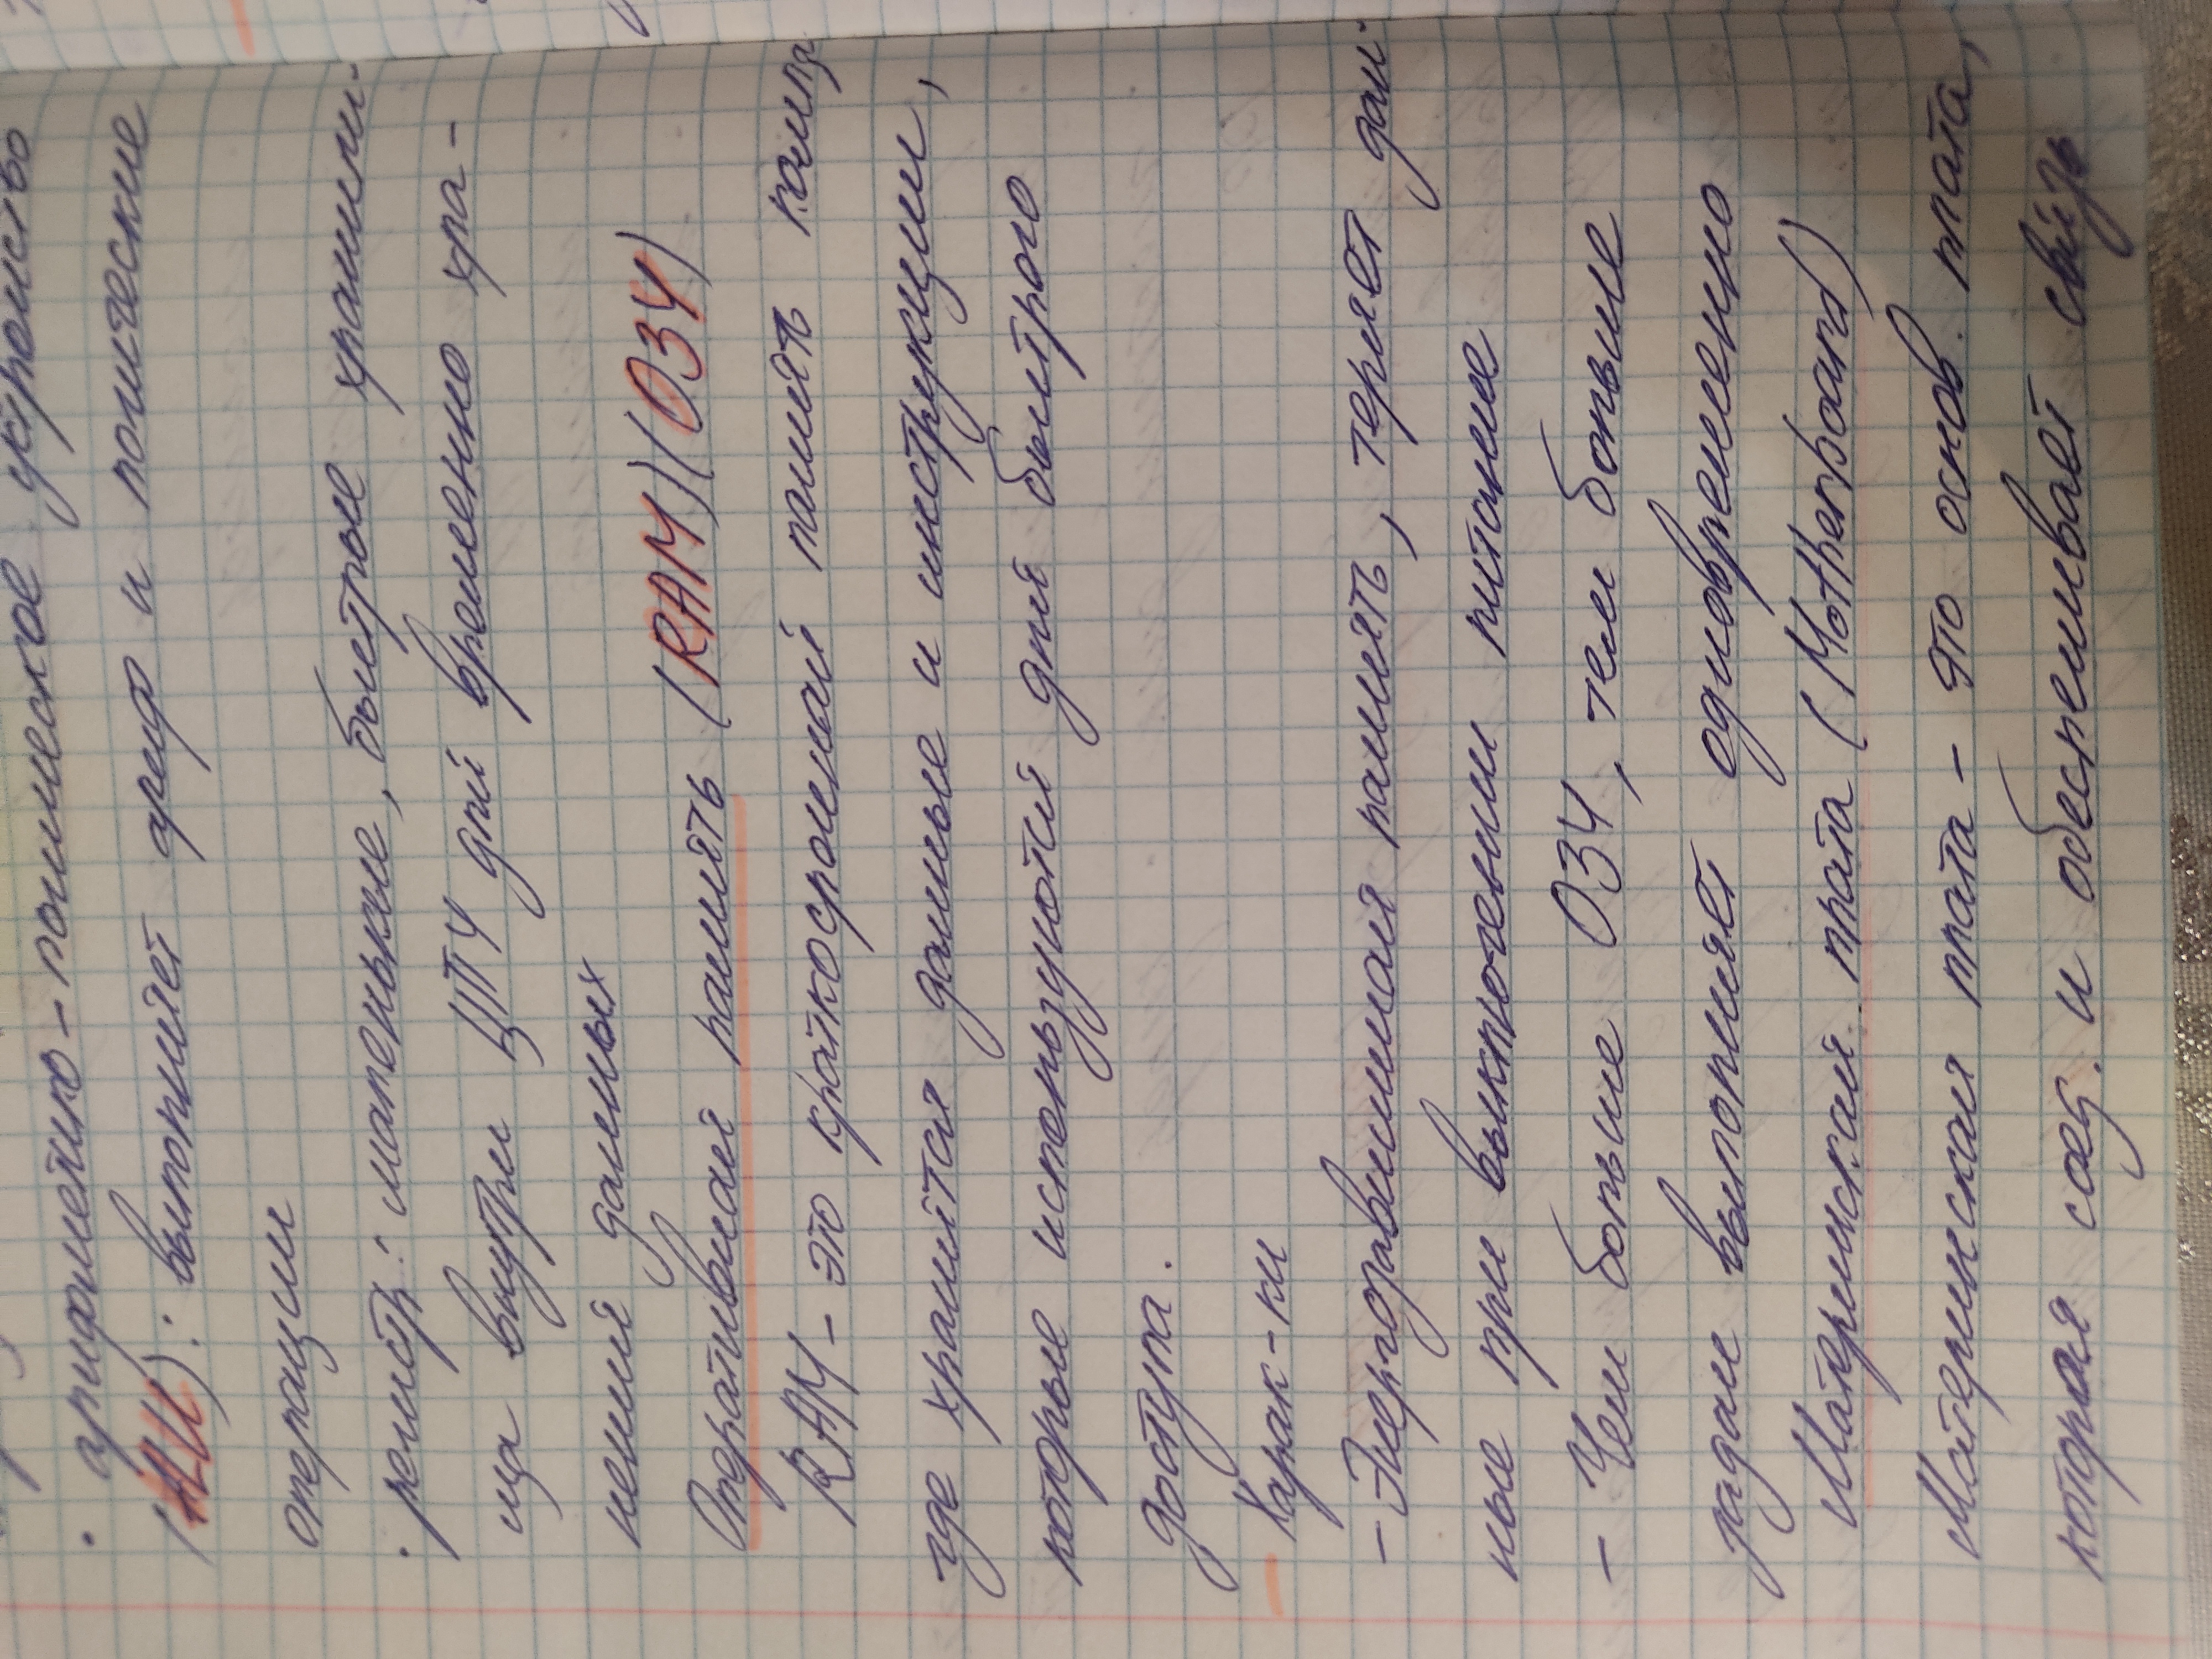 • арифметико-логическое устройство
(ALU): выполняет ариф и логические
операции
• регистр: маленькие, быстрые храмили-
ща внутри ЦПУ для временно хра-
нения данных
Оперативная память (RAM)(ОЗУ)
RAM - это краткосрочная память компа
где хранятся данные и инструкции,
которые используются для быстрого
доступа.
Харак-ки
- Энергозависимая память, теряет дан-
ные при выключении питание
- Чем больше ОЗУ, тем больше
задач выполняет одновременно
Материнская плата (Motherboard)
Материнская плата - это основ. плата,
которая соед. и обеспечивает связь